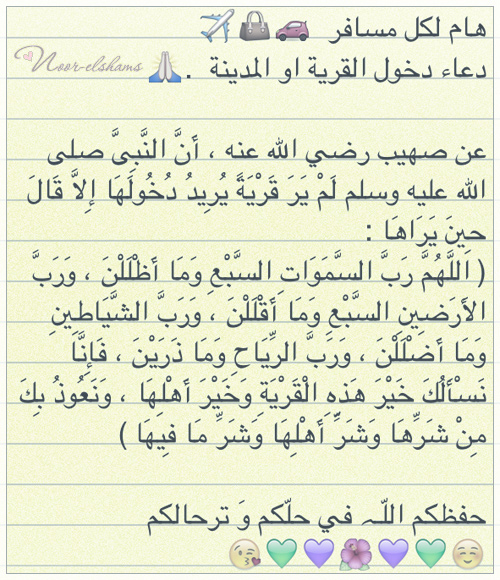 هام لكل مسافر 🚗👜✈️
دعاء دخول القرية او المدينة .🙏
Noor-elshams
عن صهيب رضي الله عنه ، أنَّ النَّبِيَّ صلى
الله عليه وسلم لَمْ يَرَ قَرْيَةً يُرِيدُ دُخُولَهَا إِلاَّ قَالَ
حِينَ يَرَاهَا :
( اللَّهُمَّ رَبَّ السَّمَوَاتِ السَّبْعِ وَمَا أَظْلَلْنَ ، وَرَبَّ
الأَرَضِينِ السَّبْعِ وَمَا أَقْلَلْنَ ، وَرَبَّ الشَّيَاطِينِ
وَمَا أَضْلَلْنَ ، وَرَبَّ الرِّيَاحِ وَمَا ذَرَيْنَ ، فَإِنَّا
نَسْأَلُكَ خَيْرَ هَذِهِ الْقَرْيَةِ وَخَيْرَ أَهْلِهَا ، وَنَعُوذُ بِكَ
مِنْ شَرِّهَا وَشَرِّ أَهْلِهَا وَشَرِّ مَا فِيهَا )
حفظكم اللّـہ في حلّكم وَ ترحالكم
☺️💚💜🌺💜💚😘